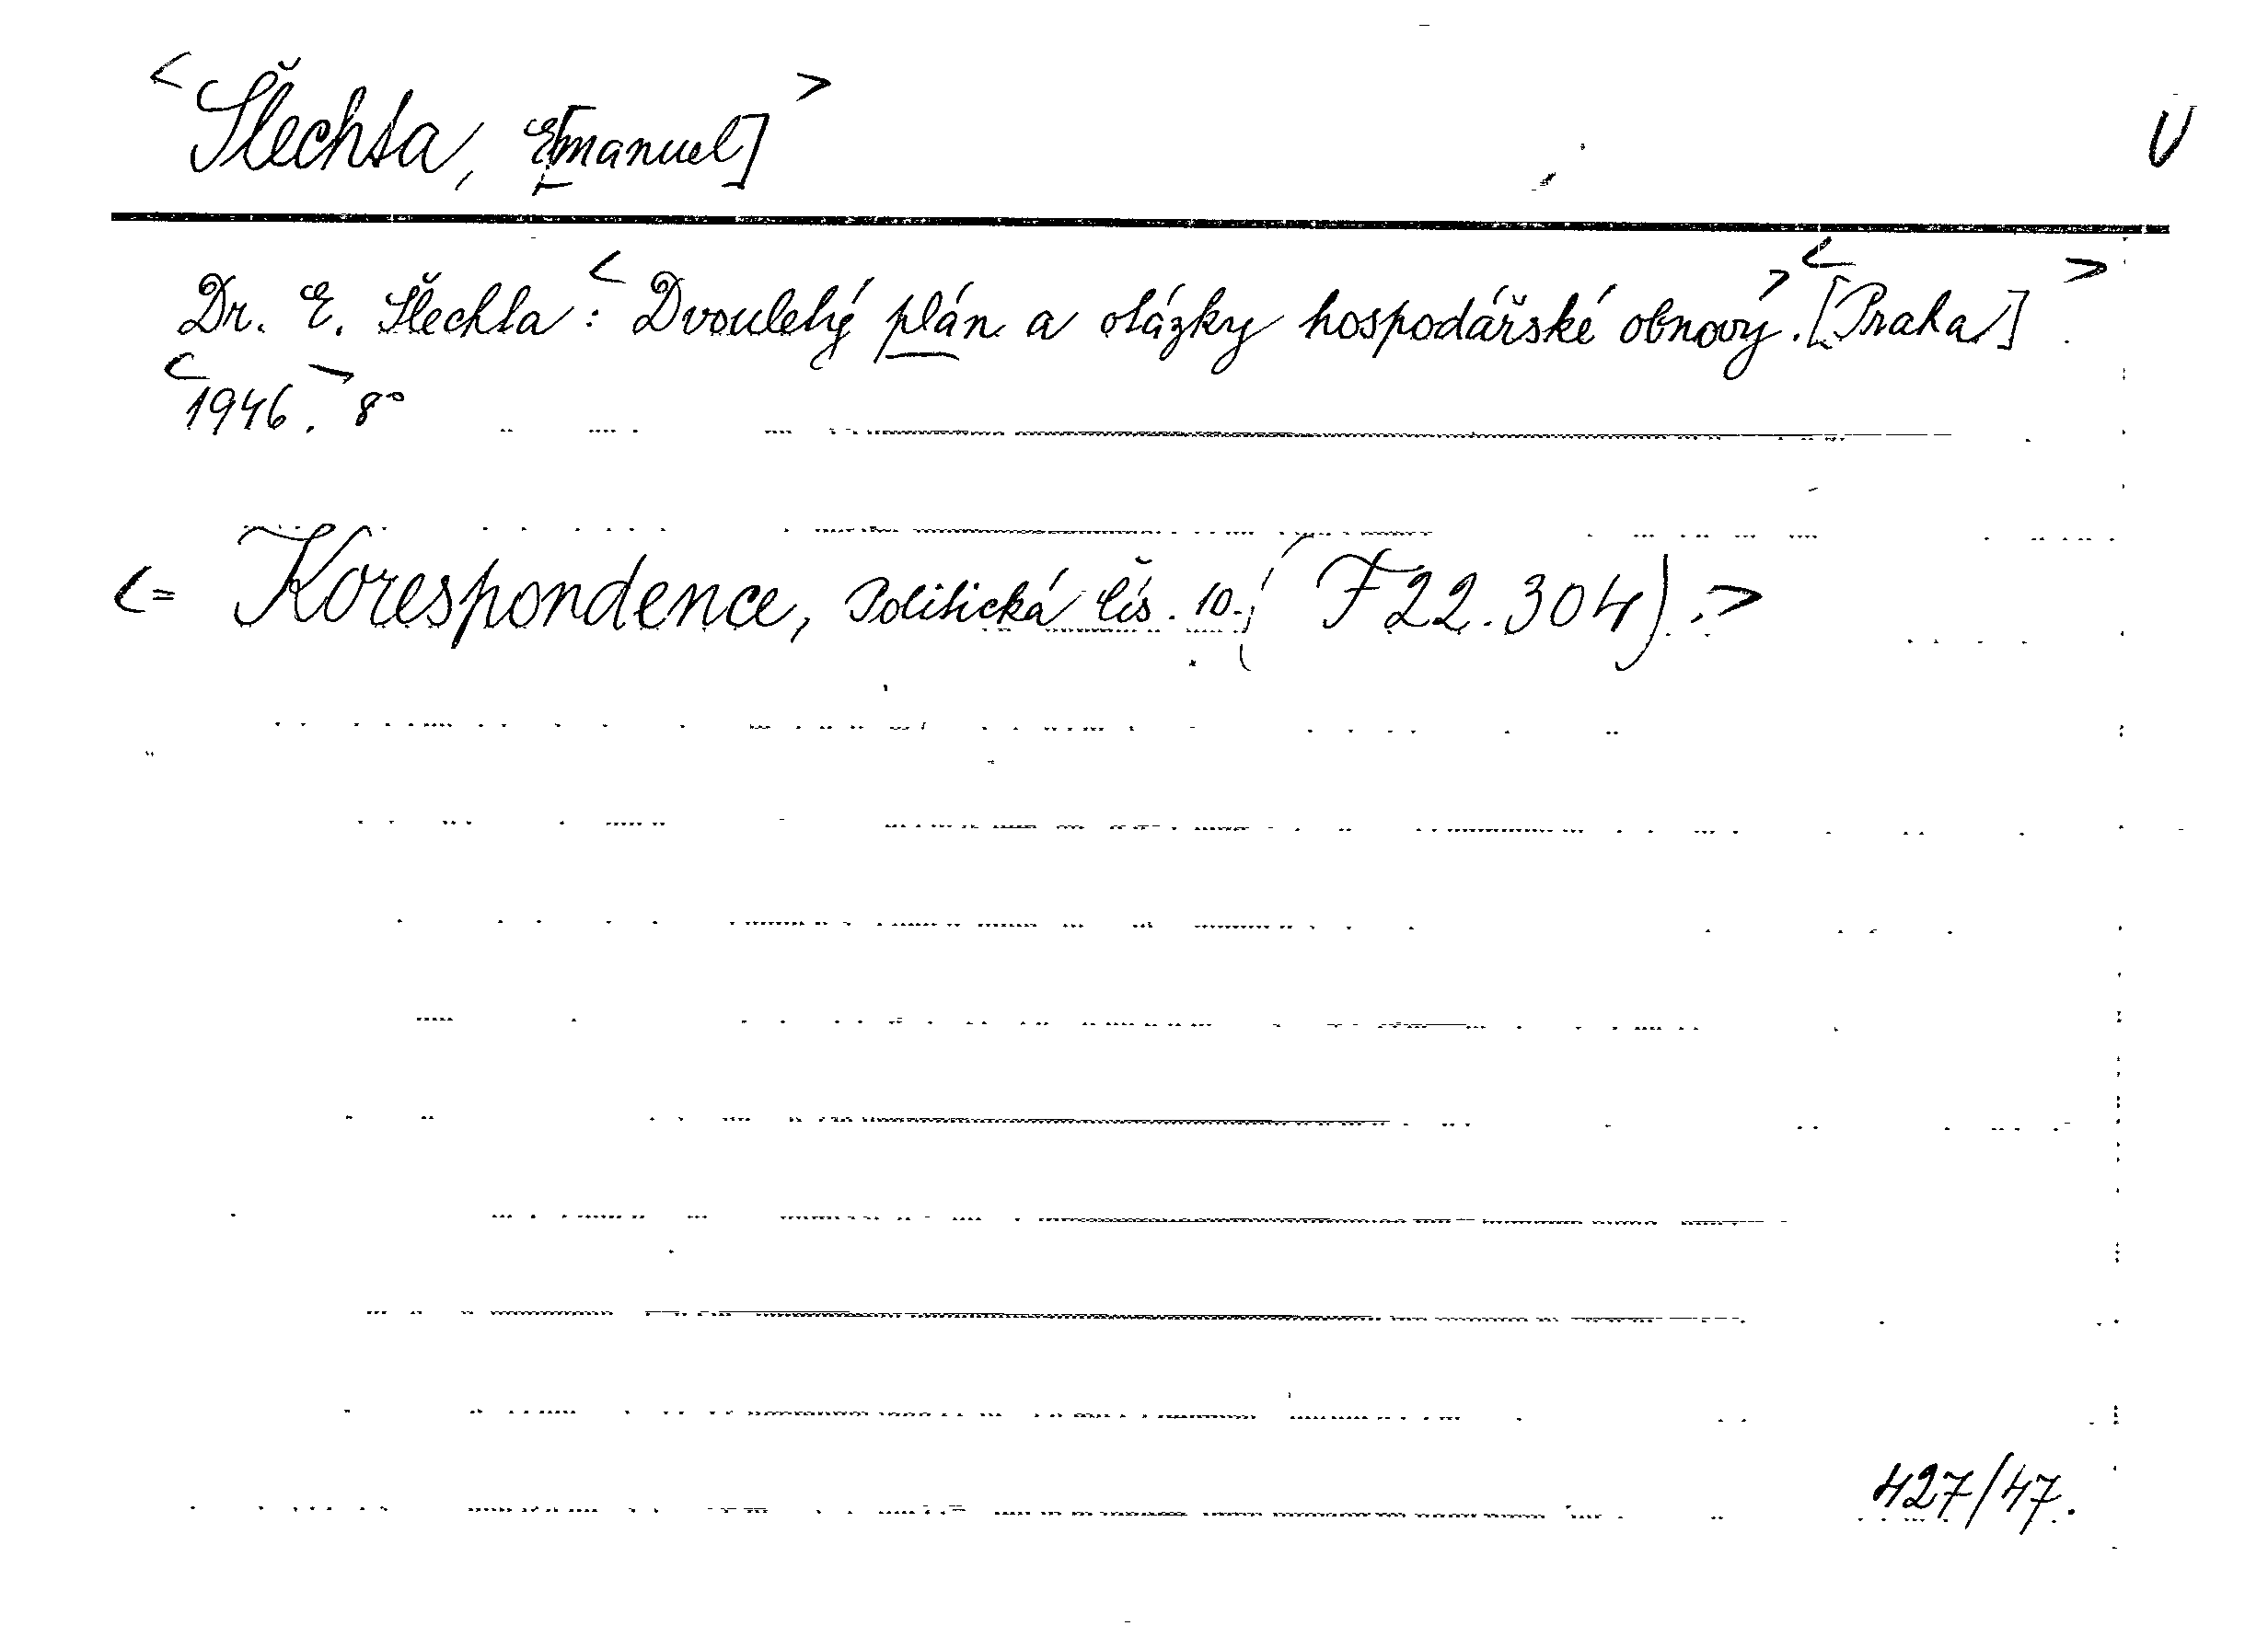 <Šlechta, E[manuel]> V
Dr. E. Šlechta: <Dvouletý plán a otázky hospodářské obnovy.> <[Praha]>
<1946.> 8°
<= Korespondence, Politická čís. 10. (F 22.304).>
427/47.